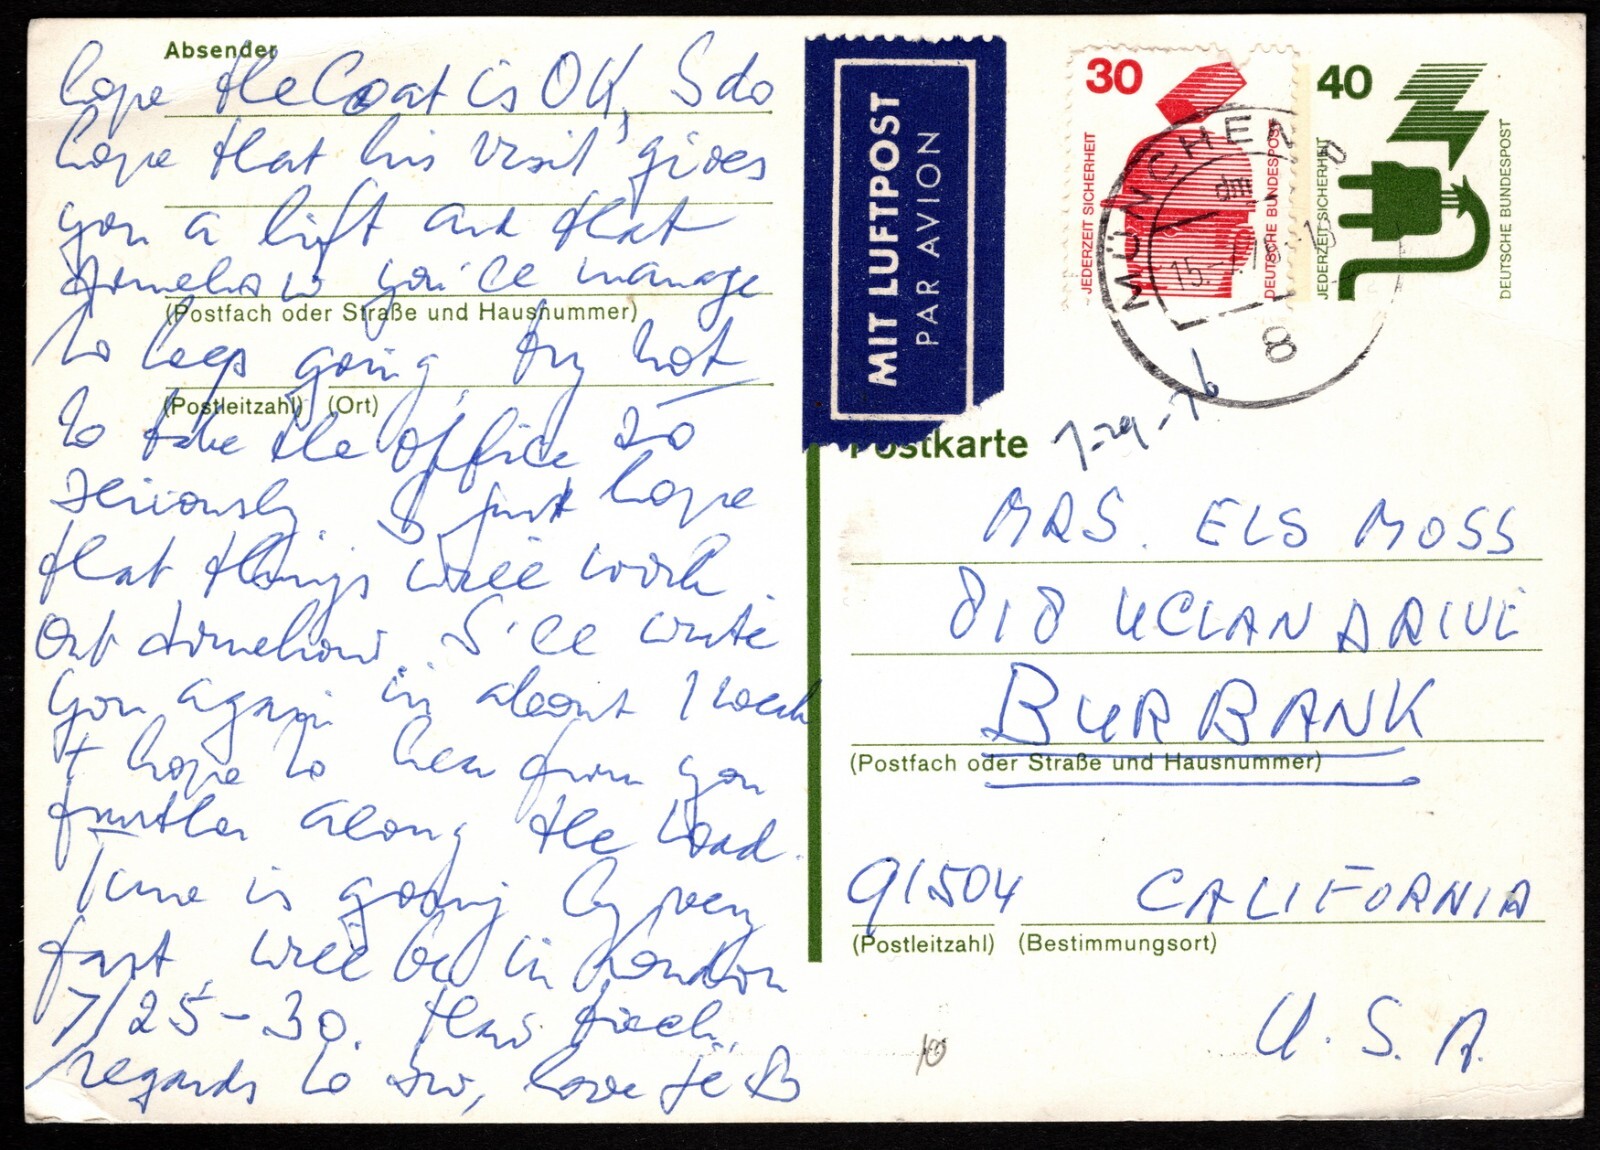 Absender
hope the Coat is OK, I do
hope that his visit gives
you a lift and that
somehow you'll manage
(Postfach oder Straße und Hausnummer)
to keep going, try not
(Postleitzahl) (Ort)
to take the office so
seriously. I just hope
that things will work
out somehow. I'll write
you again in about 1 week
+ hope to hear from you
further along the road.
Time is going by very
fast, will be in London
7/25-30.
regards to love
MIT LUFTPOST
PAR AVION
30
JEDERZEIT SICHERHEIT
DEUTSCHE BUNDESPOST
40
JEDERZEIT SICHERHEIT
DEUTSCHE BUNDESPOST
MÜNCHEN
8
Postkarte
MRS. ELS MOSS
818 UCLAN DRIVE
BURBANK
(Postfach oder Straße und Hausnummer)
91504 CALIFORNIA
(Postleitzahl) (Bestimmungsort)
U.S.A.
10